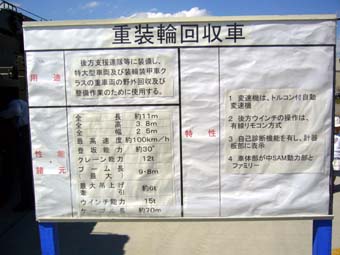 重装輪回収車
用途
後方支援連隊等に装備し、
特大型車両及び装輪装甲車ク
ラスの重車両の野外回収及び
整備作業のために使用する。
性能・諸元
全長 約11m
全高 3.8m
全幅 2.5m
最高速度 約100km/h
登坂能力 約30°
クレーン能力 12t
ブーム長(最大) 9・8m
最大吊上げ
ウインチ能力 15t
ケーブル長 約70m
特性
1 変速機は、トルコン付自動
変速機
2 後方ウインチの操作は、
有線リモコン方式
3 自己診断機能を有し、計器
板部に表示
4 車体部が中SAM動力部と
ファミリー